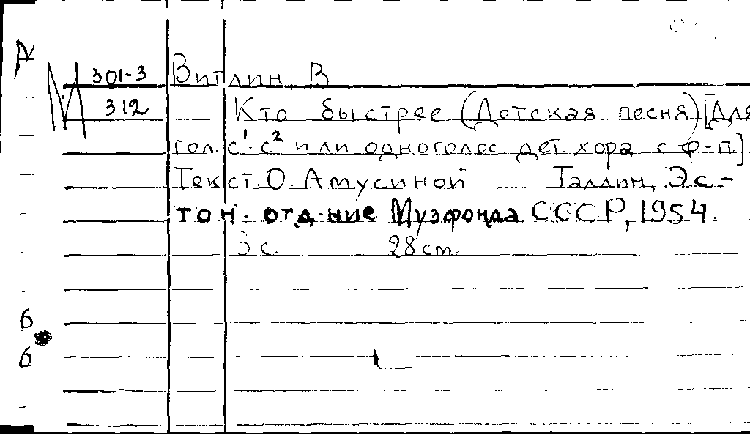 М 301-3 Витлин, В
312 Кто быстрее (Детская песня) [Для
гол. c¹-c² или одноголос дет хора с ф-п.]
Текст О. Амусиной Таллин, Эс-
тон. отд-ние Музфонда СССР, 1954.
3 с. 28 cm.
6
6